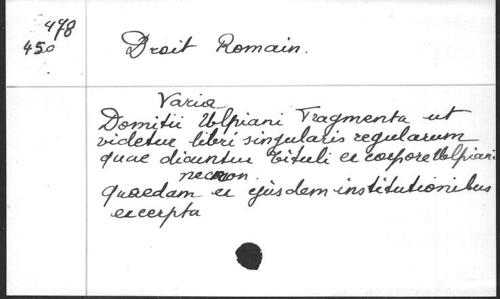 478
450
Droit Romain.
Varia
Domitii Ulpiani Fragmenta ut
videtur libri singularis regularum
quae dicuntur tituli ex corpore Ulpiani
necnon
quaedam ex ejusdem institutionibus
excerpta